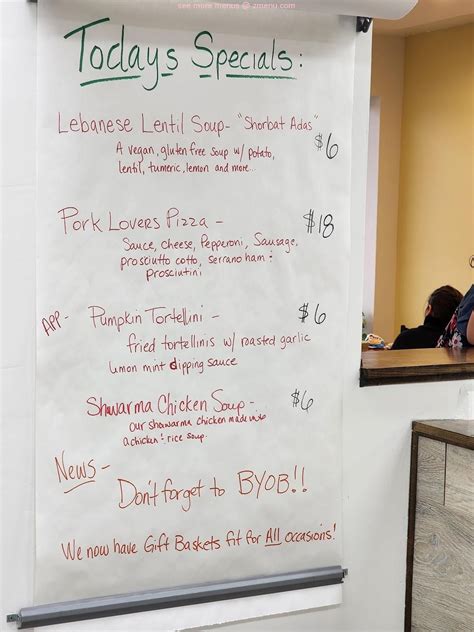 see more menus @ zmenu.com
Todays Specials:
Lebanese Lentil Soup - "Shorbat Adas" $6
A vegan, gluten free soup w/ potato,
lentil, tumeric, lemon and more...
Pork Lovers Pizza - $18
Sauce, cheese, Pepperoni, Sausage,
prosciutto cotto, serrano ham +
prosciutini
APP- Pumpkin Tortellini - $6
fried tortellinis w/ roasted garlic
lemon mint dipping sauce
Shawarma Chicken Soup - $6
our shawarma chicken made into
a chicken + rice soup.
News -
Don't forget to BYOB!!
We now have Gift Baskets fit for All occasions!